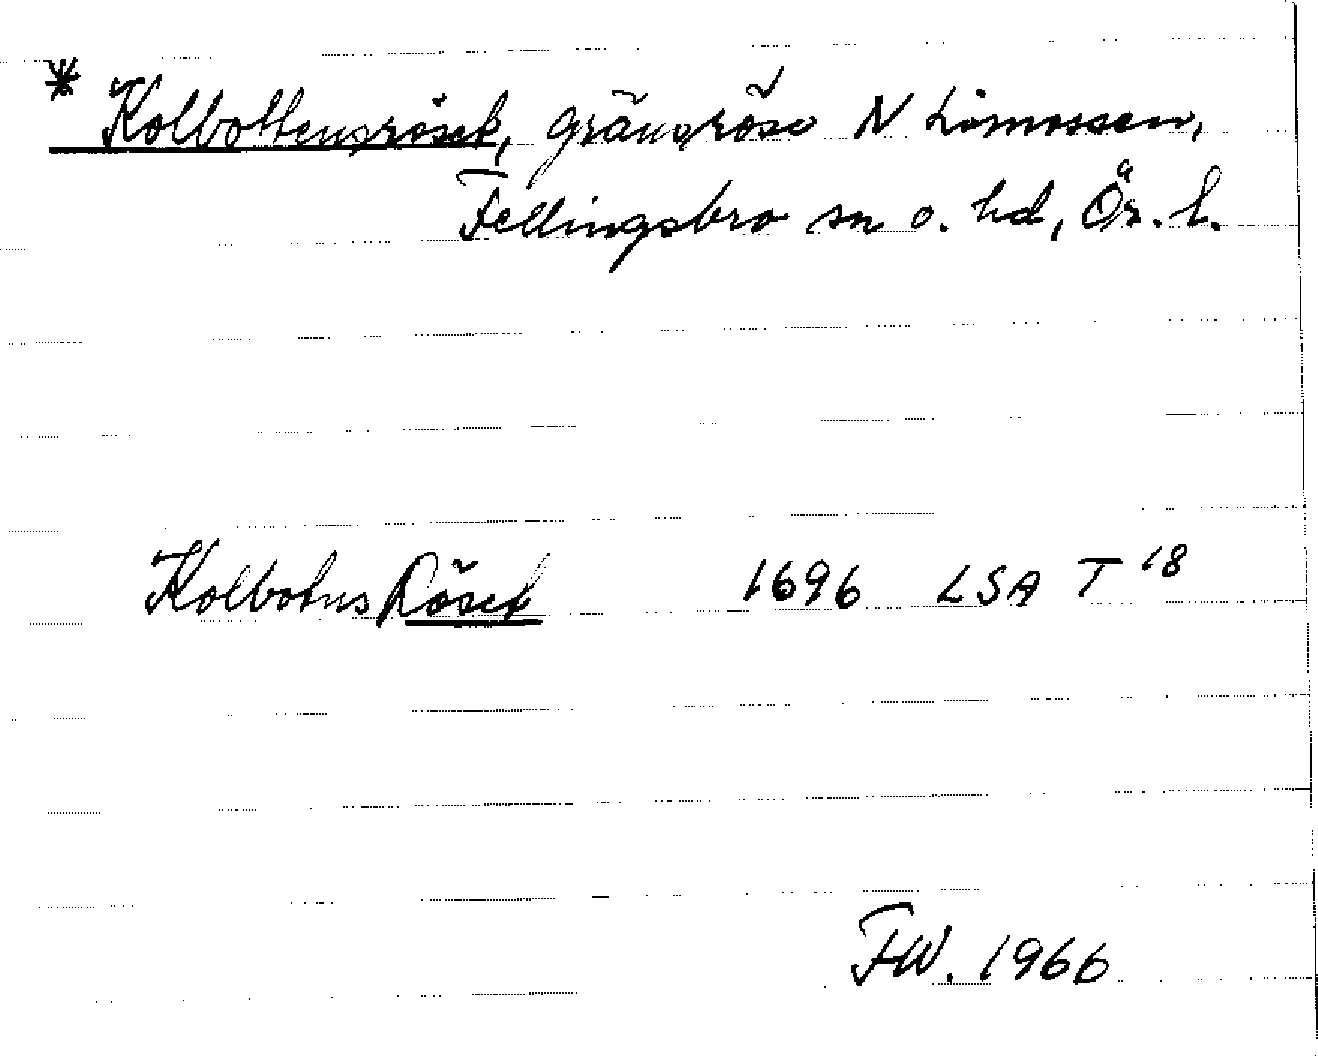 * Kolbottensröset, gränsröse N Limossen,
Fellingsbro sn o. hd, Ör. l.
Kolbotns Röset 1696 LSA T 18
FW. 1966